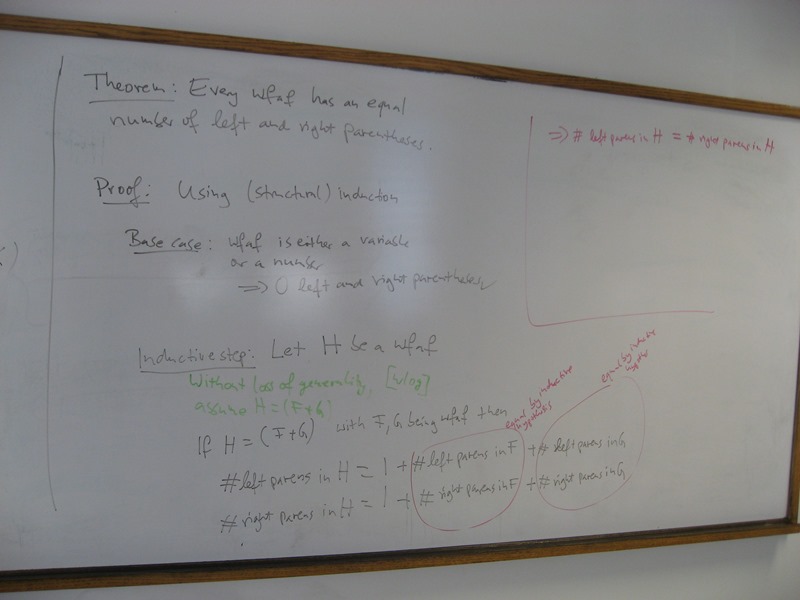 Theorem: Every wfaf has an equal
number of left and right parentheses.
Proof: Using (structural) induction
Base case: wfaf is either a variable
or a number
⟹ 0 left and right parentheses
Inductive step: Let H be a wfaf
Without loss of generality, [wlog]
assume H = (F+G)
If H = (F+G) with F, G being wfaf then
#left parens in H = 1 + #left parens in F + # left parens in G
#right parens in H = 1 + # right parens in F + # right parens in G
equal by inductive
hypothesis
equal by inductive
hypothesis
⟹ # left parens in H = # right parens in H